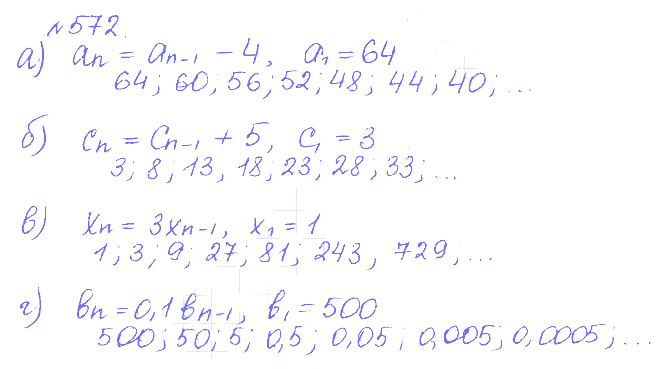 №572.
а) aₙ = aₙ₋₁ − 4, a₁ = 64
64; 60; 56; 52; 48; 44; 40; ...
б) cₙ = cₙ₋₁ + 5, c₁ = 3
3; 8; 13, 18; 23; 28; 33; ...
в) xₙ = 3xₙ₋₁, x₁ = 1
1; 3; 9; 27; 81; 243, 729, ...
г) bₙ = 0,1 bₙ₋₁, b₁ = 500
500; 50; 5; 0,5; 0,05; 0,005; 0,0005; ...